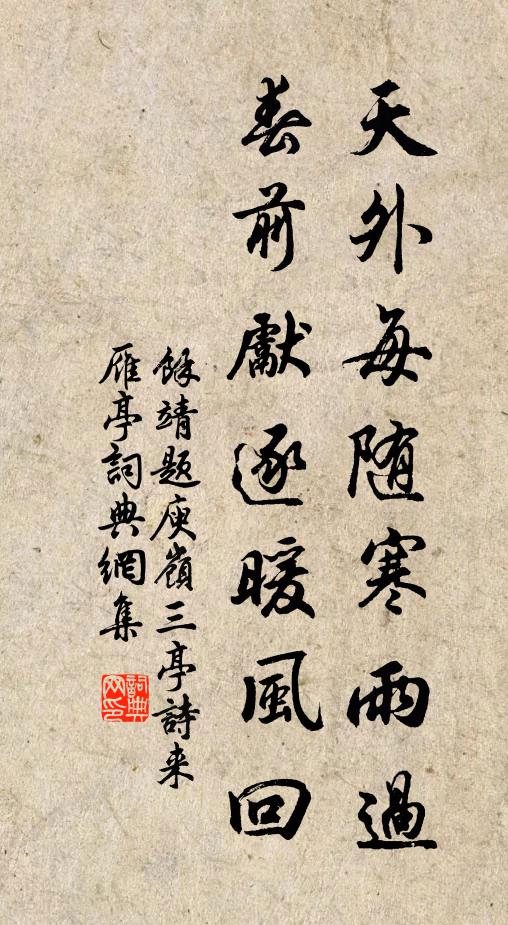 天外每随寒雨過
春前獻逐暖風回
餘靖題庾嶺三亭詩来
雁亭詞典網集
詞典網印